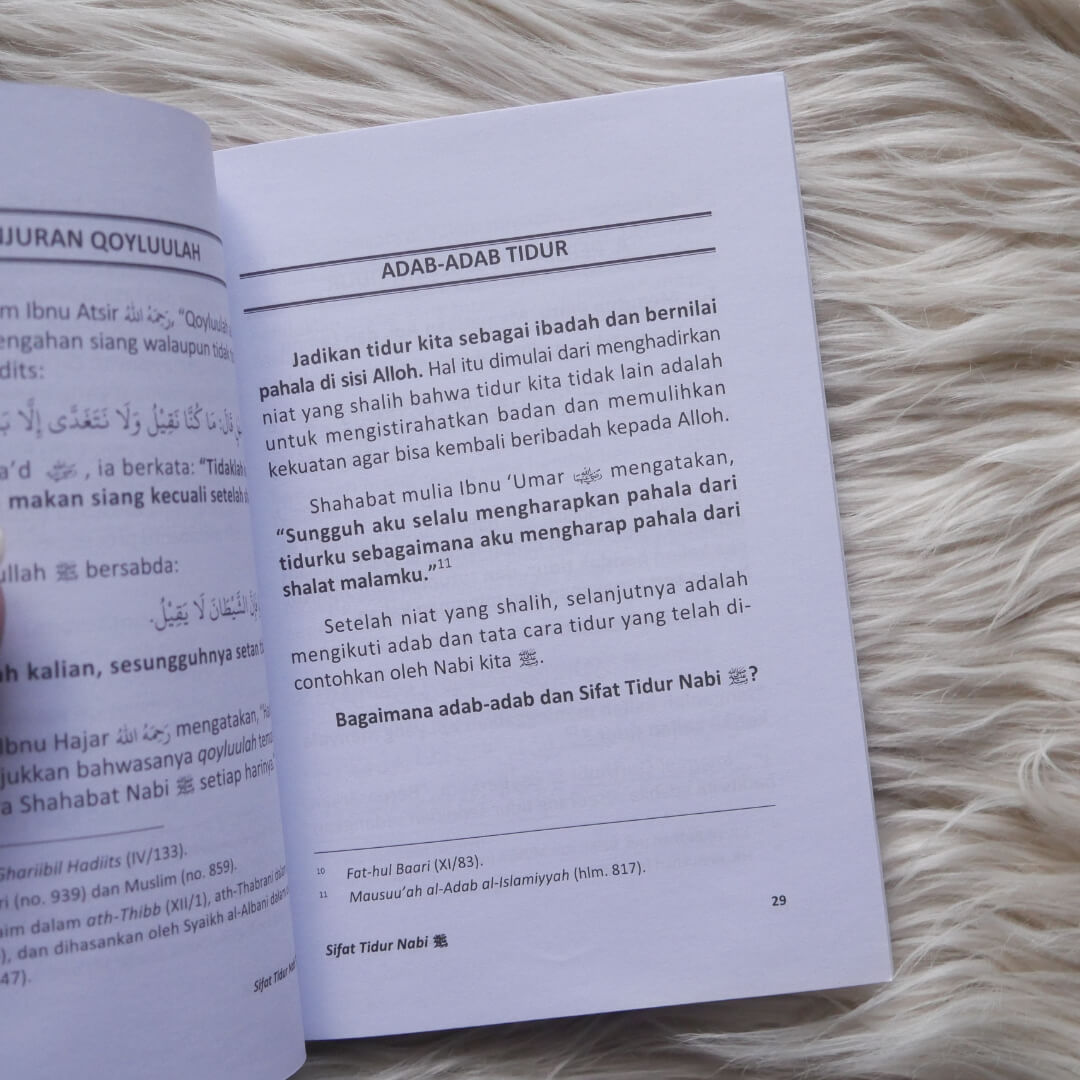 JURAN QOYLUULAH
m Ibnu Atsir رَحِمَهُ اللهُ, “Qoyluulah
engahan siang walaupun tidak
dits:
قَالَ: مَا كُنَّا نَقِيْلُ وَلَا نَتَغَدَّى إِلَّا
a’d , ia berkata: “Tidaklah
makan siang kecuali setelah
ullah ﷺ bersabda:
الشَّيْطَانَ لَا يَقِيْلُ.
h kalian, sesungguhnya setan
Ibnu Hajar رَحِمَهُ اللهُ mengatakan,
jukkan bahwasanya qoyluulah
a Shahabat Nabi ﷺ setiap harinya
Ghariibil Hadiits (IV/133).
ri (no. 939) dan Muslim (no. 859).
aim dalam ath-Thibb (XII/1), ath-Thabrani dalam
), dan dihasankan oleh Syaikh al-Albani dalam
47).
Sifat Tidur Nabi
ADAB-ADAB TIDUR
Jadikan tidur kita sebagai ibadah dan bernilai
pahala di sisi Alloh. Hal itu dimulai dari menghadirkan
niat yang shalih bahwa tidur kita tidak lain adalah
untuk mengistirahatkan badan dan memulihkan
kekuatan agar bisa kembali beribadah kepada Alloh.
Shahabat mulia Ibnu ‘Umar mengatakan,
“Sungguh aku selalu mengharapkan pahala dari
tidurku sebagaimana aku mengharap pahala dari
shalat malamku.”11
Setelah niat yang shalih, selanjutnya adalah
mengikuti adab dan tata cara tidur yang telah di-
contohkan oleh Nabi kita ﷺ.
Bagaimana adab-adab dan Sifat Tidur Nabi ﷺ?
10 Fat-hul Baari (XI/83).
11 Mausuu’ah al-Adab al-Islamiyyah (hlm. 817).
29
Sifat Tidur Nabi ﷺ